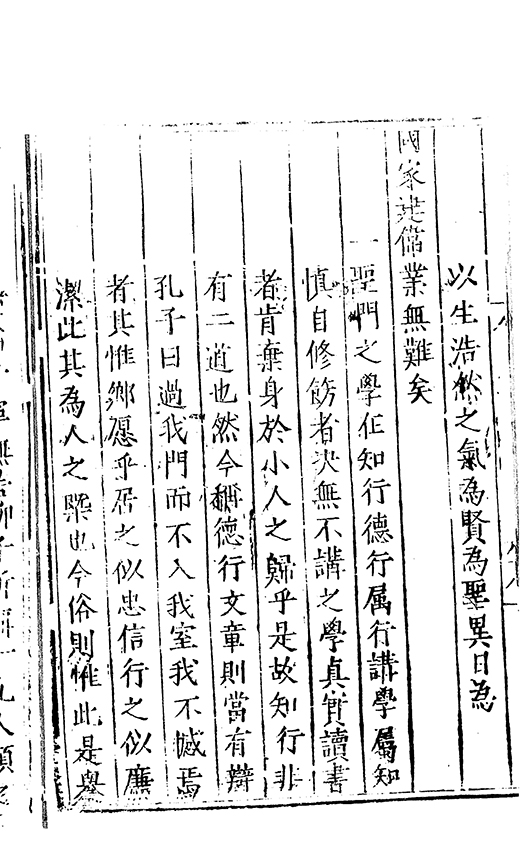 以生浩然之氣為賢為聖異日為
國家建偉業無難矣
一聖門之學在知行德行属行講學屬知
慎自修飭者决無不講之學真實讀書
者肯棄身於小人之歸乎是故知行非
有二道也然今稱德行文章則當有辯
孔子曰過我門而不入我室我不憾焉
者其惟鄉愿乎居之似忠信行之似廉
潔此其為人之槩也今俗則惟此是舉